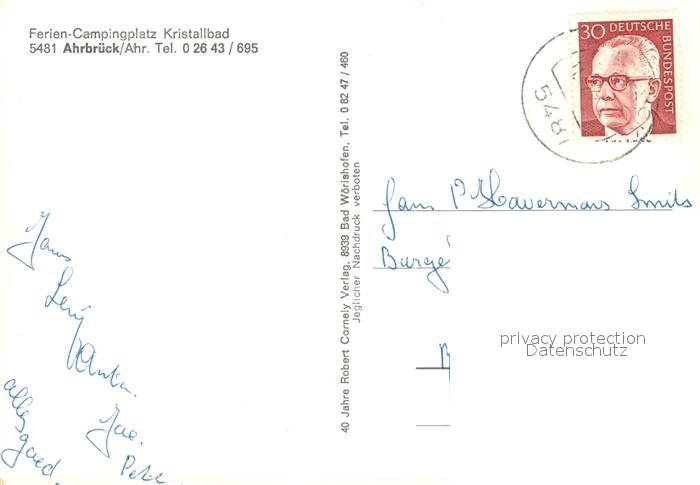 Ferien-Campingplatz Kristallbad
5481 Ahrbrück/Ahr. Tel. 0 26 43 / 695
30 DEUTSCHE BUNDESPOST
5481
40 Jahre Robert Cornely Verlag, 8939 Bad Wörishofen, Tel. 0 82 47 / 460
Jeglicher Nachdruck verboten
Fam P Havermans Smits
Burge
privacy protection
Datenschutz
Hans
Leny
Anton
Jac.
Peter
alles goed.